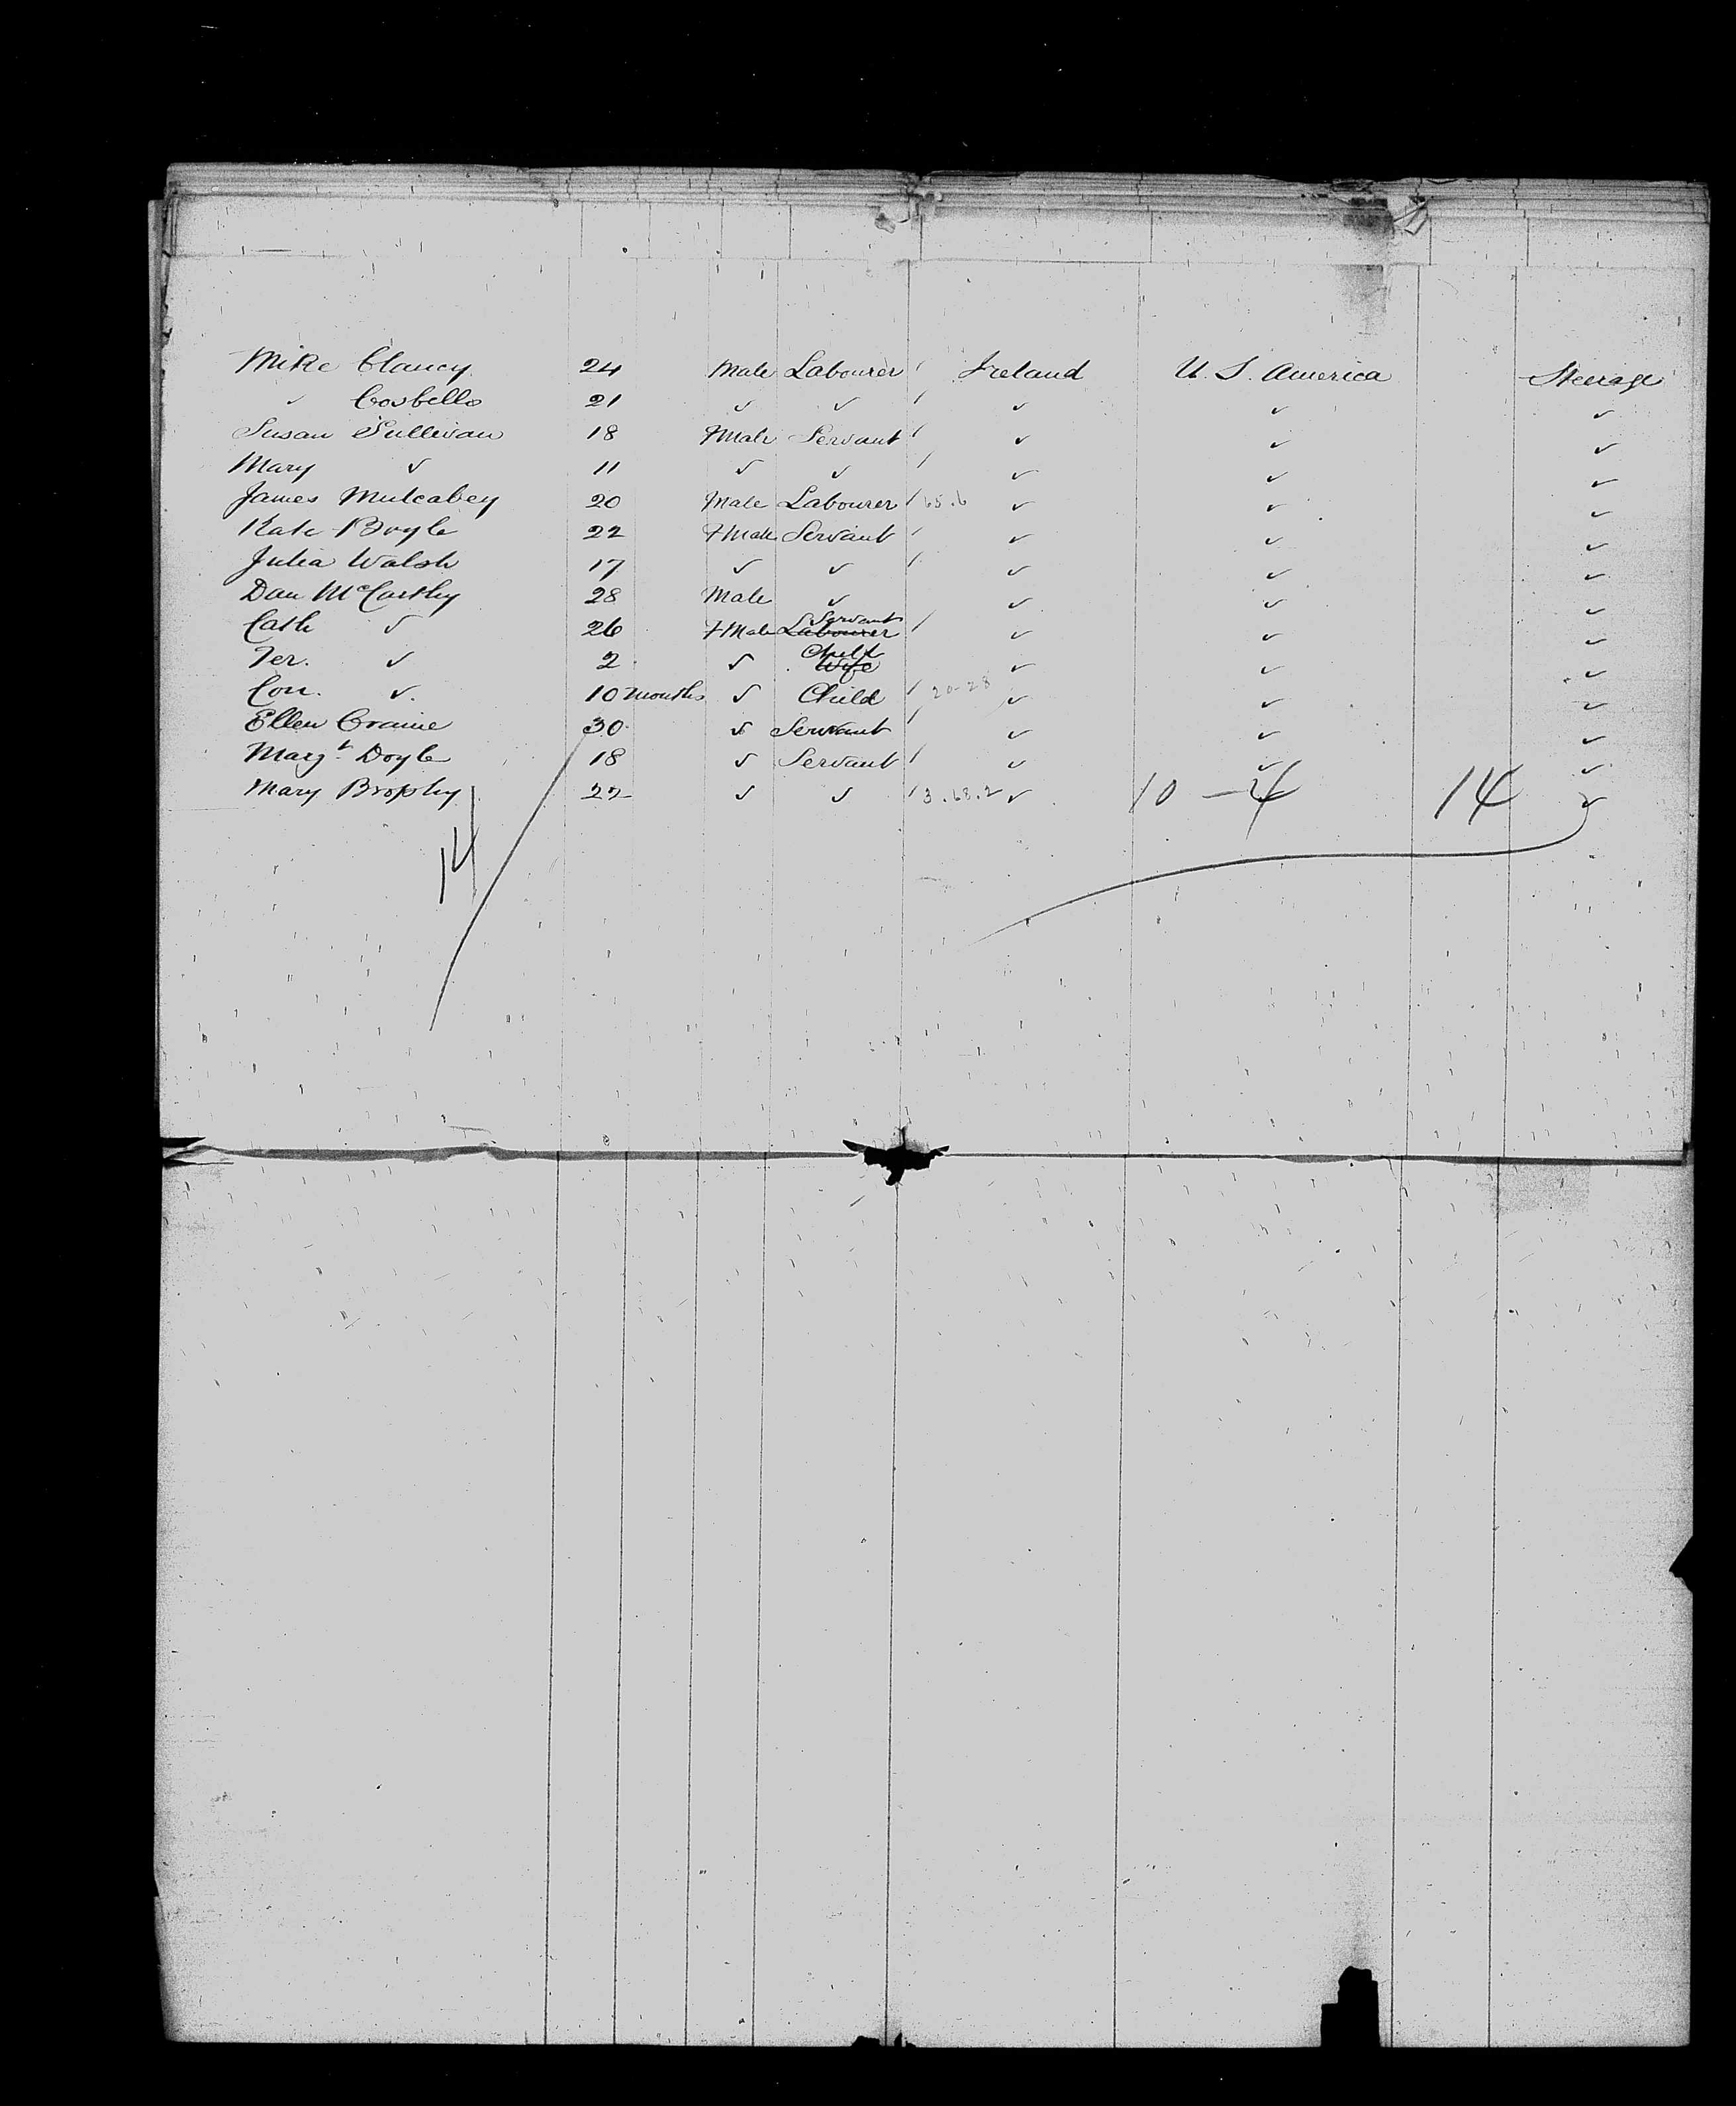 Mike Clancy 24 Male Labourer Ireland U. S. America Steerage
✓ Costello 21 ✓ ✓ ✓ ✓ ✓
Susan Sullivan 18 FMale Servant ✓ ✓ ✓
Mary ✓ 11 ✓ ✓ ✓ ✓ ✓
James Mulcahey 20 Male Labourer 65.6 ✓ ✓ ✓
Kate Boyle 22 FMale Servant ✓ ✓ ✓
Julia Walsh 17 ✓ ✓ ✓ ✓ ✓
Dan McCarthy 28 Male ✓ ✓ ✓ ✓
Cath ✓ 26 FMale Labourer Servant ✓ ✓ ✓
Jer. ✓ 2 ✓ Wife Child ✓ ✓ ✓
Con. ✓ 10 months ✓ Child 20-28 ✓ ✓ ✓
Ellen Craine 30 ✓ Servant ✓ ✓ ✓
Margt Doyle 18 ✓ Servant ✓ ✓ ✓
Mary Brophy 22 ✓ ✓ 3.68.2 ✓ 10 - 4 14 ✓
14